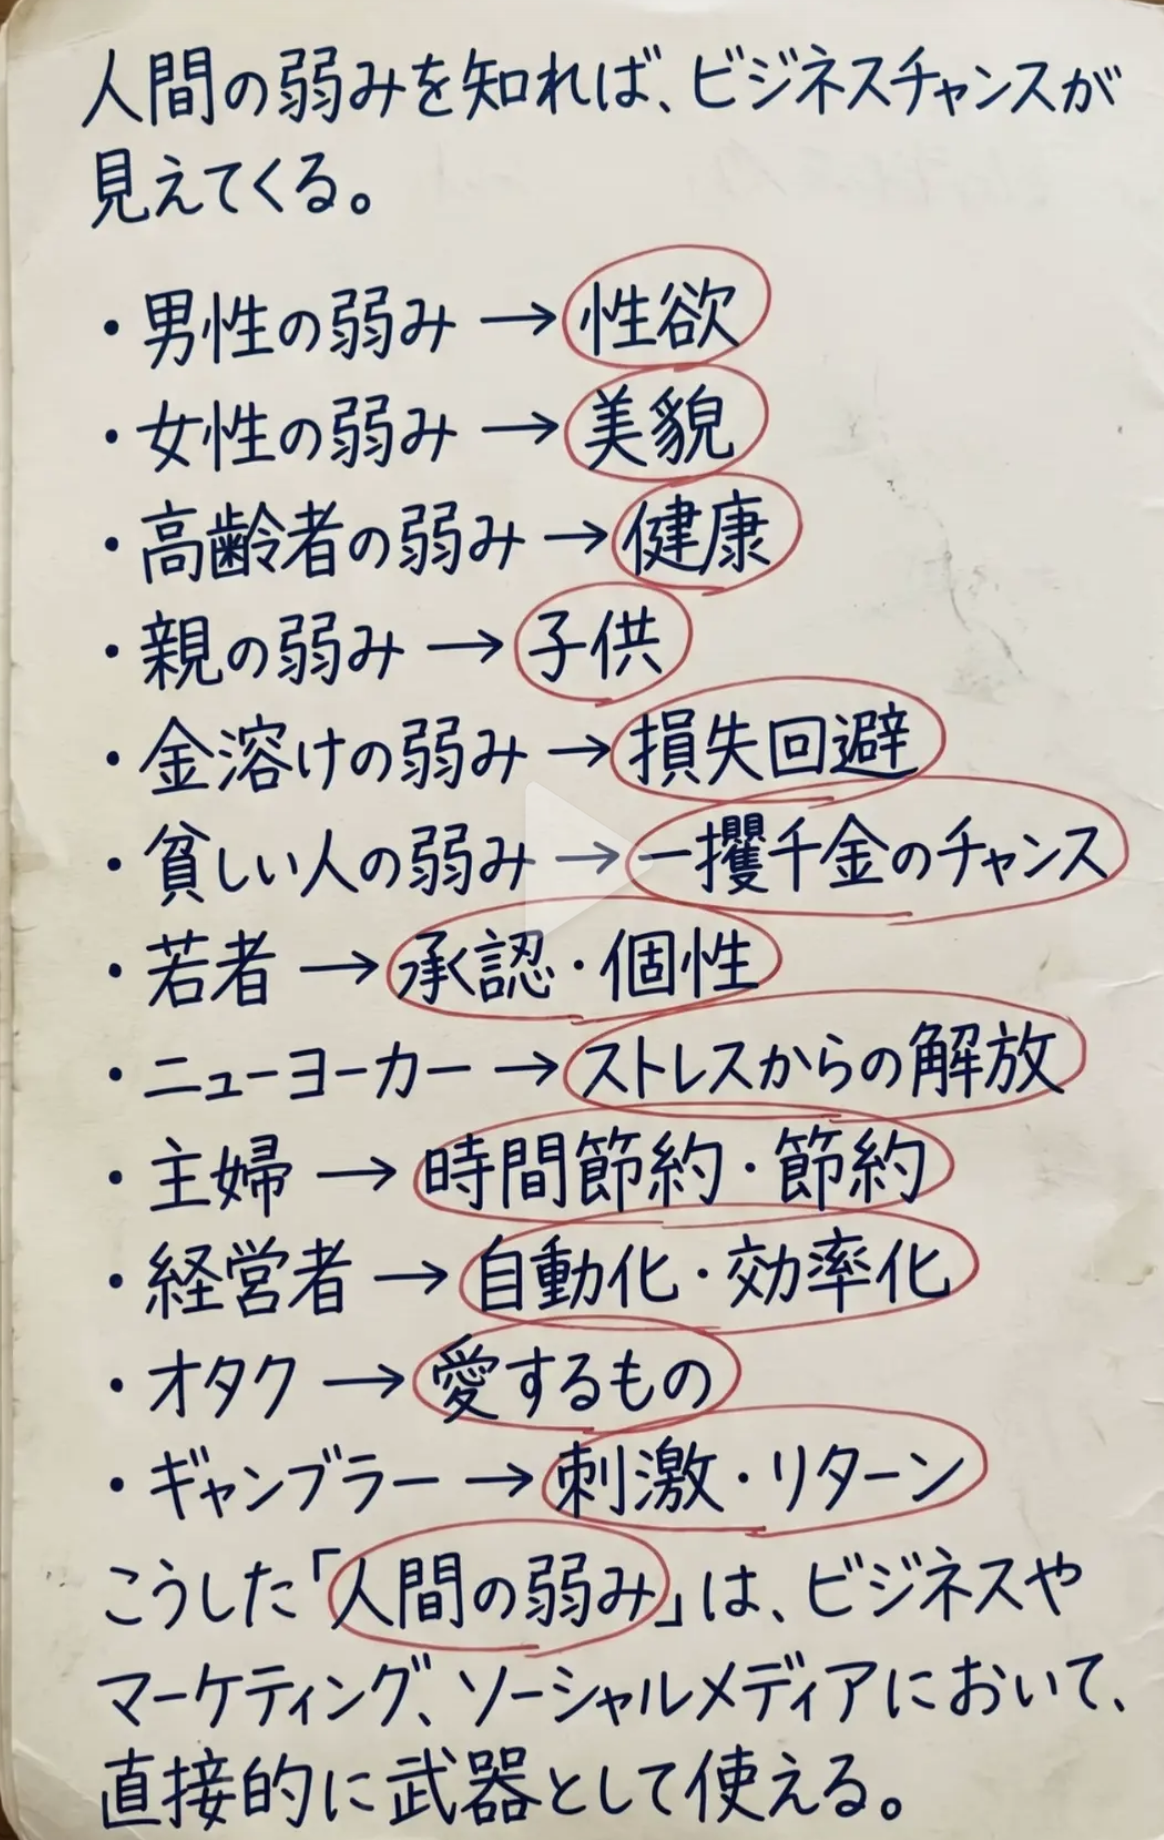 人間の弱みを知れば、ビジネスチャンスが
見えてくる。
・男性の弱み → 性欲
・女性の弱み → 美貌
・高齢者の弱み → 健康
・親の弱み → 子供
・金溶けの弱み → 損失回避
・貧しい人の弱み → 一攫千金のチャンス
・若者 → 承認・個性
・ニューヨーカー → ストレスからの解放
・主婦 → 時間節約・節約
・経営者 → 自動化・効率化
・オタク → 愛するもの
・ギャンブラー → 刺激・リターン
こうした「人間の弱み」は、ビジネスや
マーケティング、ソーシャルメディアにおいて、
直接的に武器として使える。